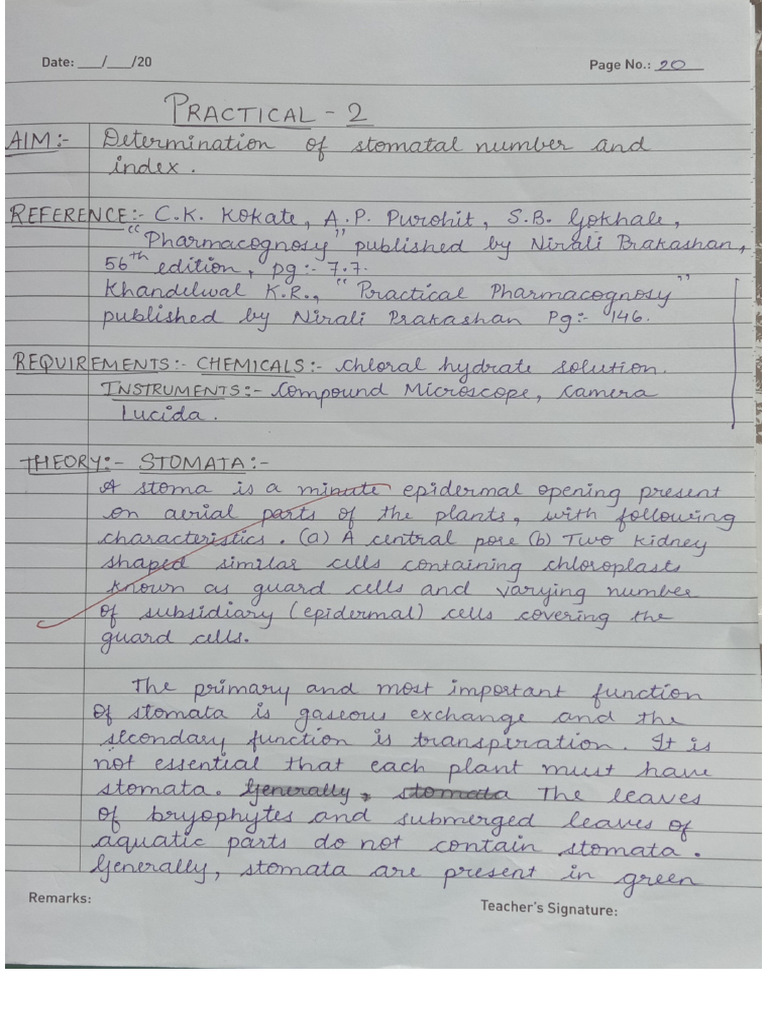 Date: __/__/20
Page No.: 20
PRACTICAL - 2
AIM:- Determination of stomatal number and
index.
REFERENCE:- C.K. Kokate, A.P. Purohit, S.B. Gokhale,
"Pharmacognosy" published by Nirali Prakashan,
56th edition, pg:- 7.7.
Khandelwal K.R., "Practical Pharmacognosy"
published by Nirali Prakashan Pg:- 146.
REQUIREMENTS:- CHEMICALS:- Chloral hydrate solution.
INSTRUMENTS:- Compound Microscope, Camera
Lucida.
THEORY:- STOMATA:-
A stoma is a minute epidermal opening present
on aerial parts of the plants, with following
characteristics. (a) A central pore (b) Two kidney
shaped similar cells containing chloroplasts
known as guard cells and varying number
of subsidiary (epidermal) cells covering the
guard cells.
The primary and most important function
of stomata is gaseous exchange and the
secondary function is transpiration. It is
not essential that each plant must have
stomata. Generally, stomata The leaves
of bryophytes and submerged leaves of
aquatic parts do not contain stomata.
Generally, stomata are present in green
Remarks:
Teacher's Signature: